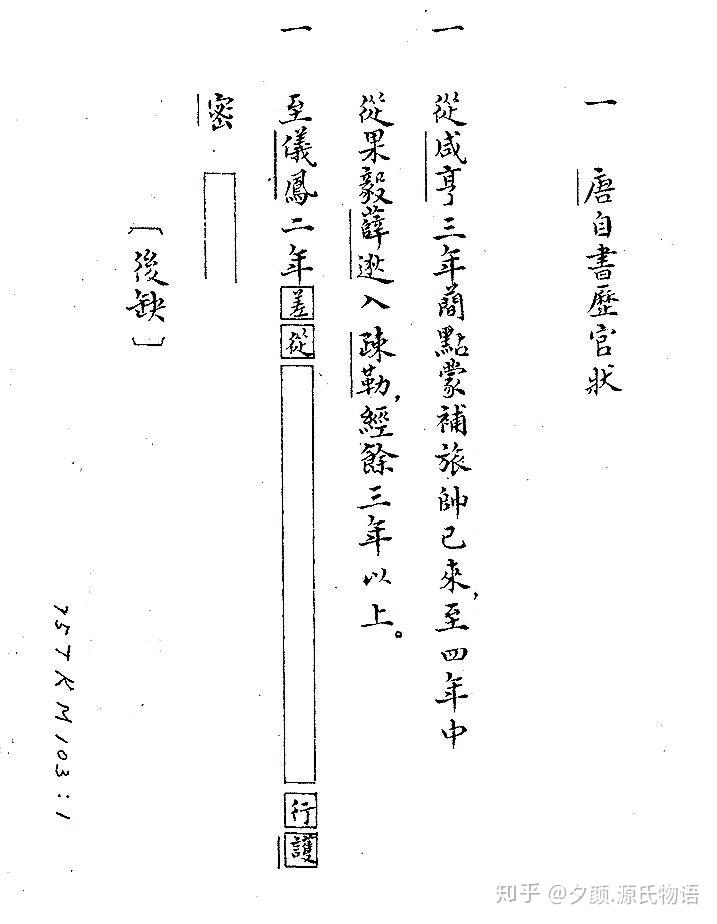 一 唐自書歷官狀
一 從咸亨三年蕳點蒙補旅帥已來,至四年中
從果毅薛逖入疎勒,經餘三年以上。
一 至儀鳳二年差從 行護
密
〔後缺〕
75TKM103:1
知乎 @夕颜.源氏物语